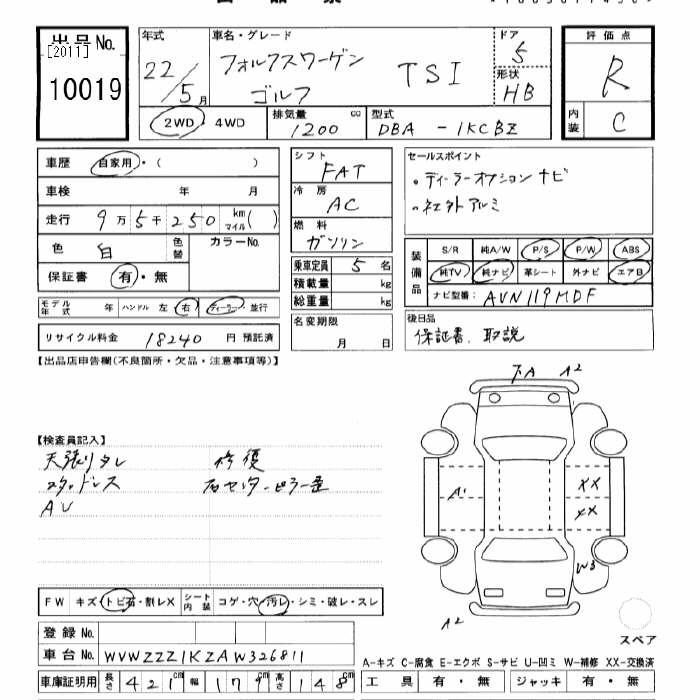 出品No.
[2011]
10019
年式
22/5月
車名・グレード
フォルクスワーゲン
ゴルフ
TSI
ドア
5
形状
HB
評価点
R
内装
C
2WD・4WD
排気量
1200 cc
型式
DBA - 1KCBZ
車歴 自家用・( )
車検 年 月
走行 9万5千250 km マイル( )
色 白 色替 カラーNo.
保証書 有・無
モデル年式 年 ハンドル 左 右 ディーラー・並行
リサイクル料金 18240 円 預託済
シフト
FAT
冷房
AC
燃料
ガソリン
乗車定員 5 名
積載量 kg
総重量 kg
名変期限
月 日
セールスポイント
・ディーラーオプション ナビ
・社外アルミ
装備品
S/R 純A/W P/S P/W ABS
純TV 純ナビ 革シート 外ナビ エアB
ナビ型番: AVN119MDF
後日品
保証書、取説
【出品店申告欄(不良箇所・欠品・注意事項等)】
【検査員記入】
天張りタレ 修復
スタッドレス 右センターピラー歪
AV
下A A2
A1
XX
XX
W3
A2
スペア
FW キズ・トビ石・割レX シート内装 コゲ・穴・汚レ・シミ・破レ・スレ
登録No.
車台No. WVWZZZ1KZAW326811
車庫証明用 長さ 421cm 幅 179cm 高さ 148cm
A-キズ C-腐食 E-エクボ S-サビ U-凹ミ W-補修 XX-交換済
工具 有・無 ジャッキ 有・無